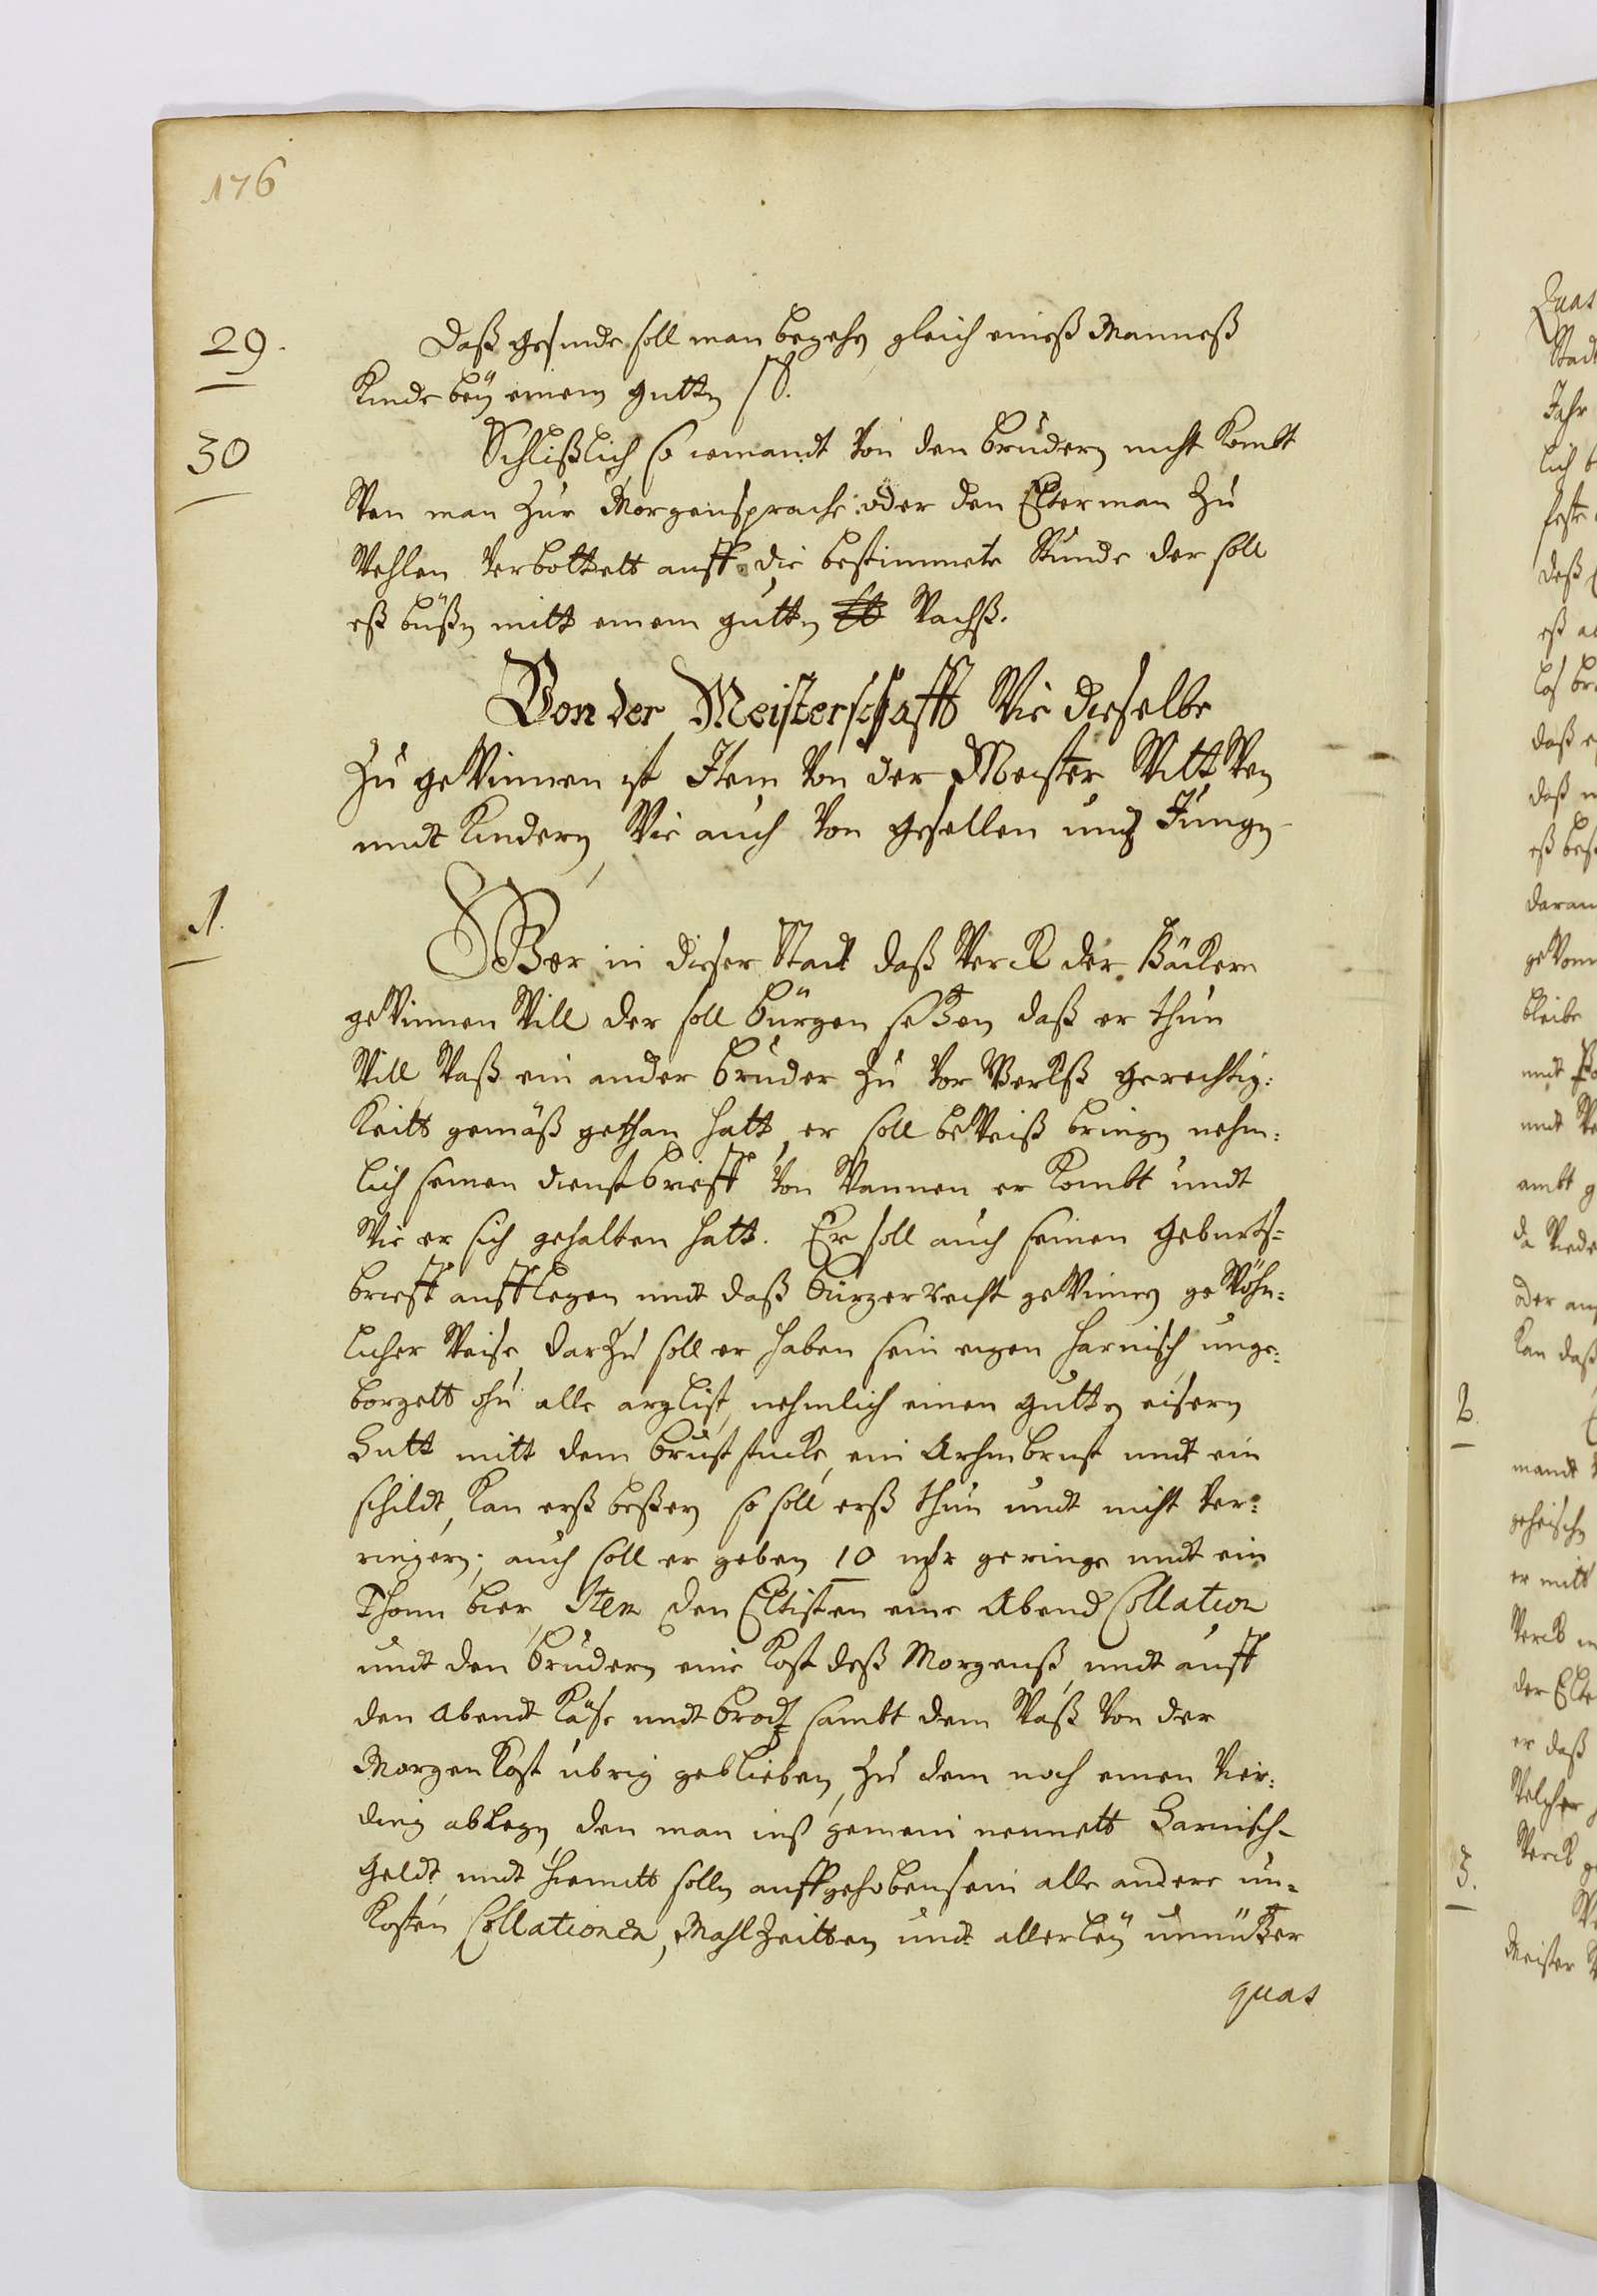 176
29. Daß gesinde soll man begehen gleich eineß Manneß
Kinde beÿ einem gutten ß.
30 Schlißlich so iemandt von den brudern nicht kombt
Wen man zur Morgensprache oder den Elterman zu
Wehlen verbottett auff die bestimmete Stunde der soll
eß büßen mitt einem gutten ℔ Wachß.
Von der Meisterschafft Wie dieselbe
zu geWinnen ist Item von der Meister WittWen
undt Kindern, Wie auch von gesellen undt Jungen
1. Wer in dieser Stadt daß Werck der Bäckern
geWinnen Will der soll bürgen setzen daß er thun
Will Waß ein ander bruder zu vor Werkß gerechtig:
keitt gemäß gethan hatt, er soll beWeiß bringen nehm:
lich seinen dienstbrieff von Wannen er kombt undt
Wie er sich gehalten hatt. Er soll auch seinen geburts=
brieff aufflegen undt daß bürgerrecht geWinnen geWöhn:
licher Weise, darzu soll er haben sein eigen harnisch unge:
borgett ohn alle arglist, nehmlich einen gutten eisern
Hutt mitt dem bruststucke, ein Arhmbrust undt ein
schildt, kan erß beßern so soll erß thun undt nicht ver:
ringern; auch soll er geben 10 mſr geringe undt ein
Thonn bier, Item den Eltisten eine Abend Collation
undt den brudern eine kost deß Morgenß undt auff
den Abendt käse undt brodt sambt dem Waß von der
Morgenkost ubrig geblieben, zu dem noch einen vier:
ding ablegen den man inß gemein nennett Harnisch-
geldt undt hiemitt sollen auffgehoben sein alle andere un=
kosten Collationen, Mahlzeitten undt allerleÿ unnützer
quas
Quas
Stadt
Jahr
lich
feste
deß
eß
daß
daß
eß
daran
bleibe
undt
undt
ambt
oder
kan daß
2.
mandt
er mitt
Werck
der
er daß
Welcher
3. Werck
Meister